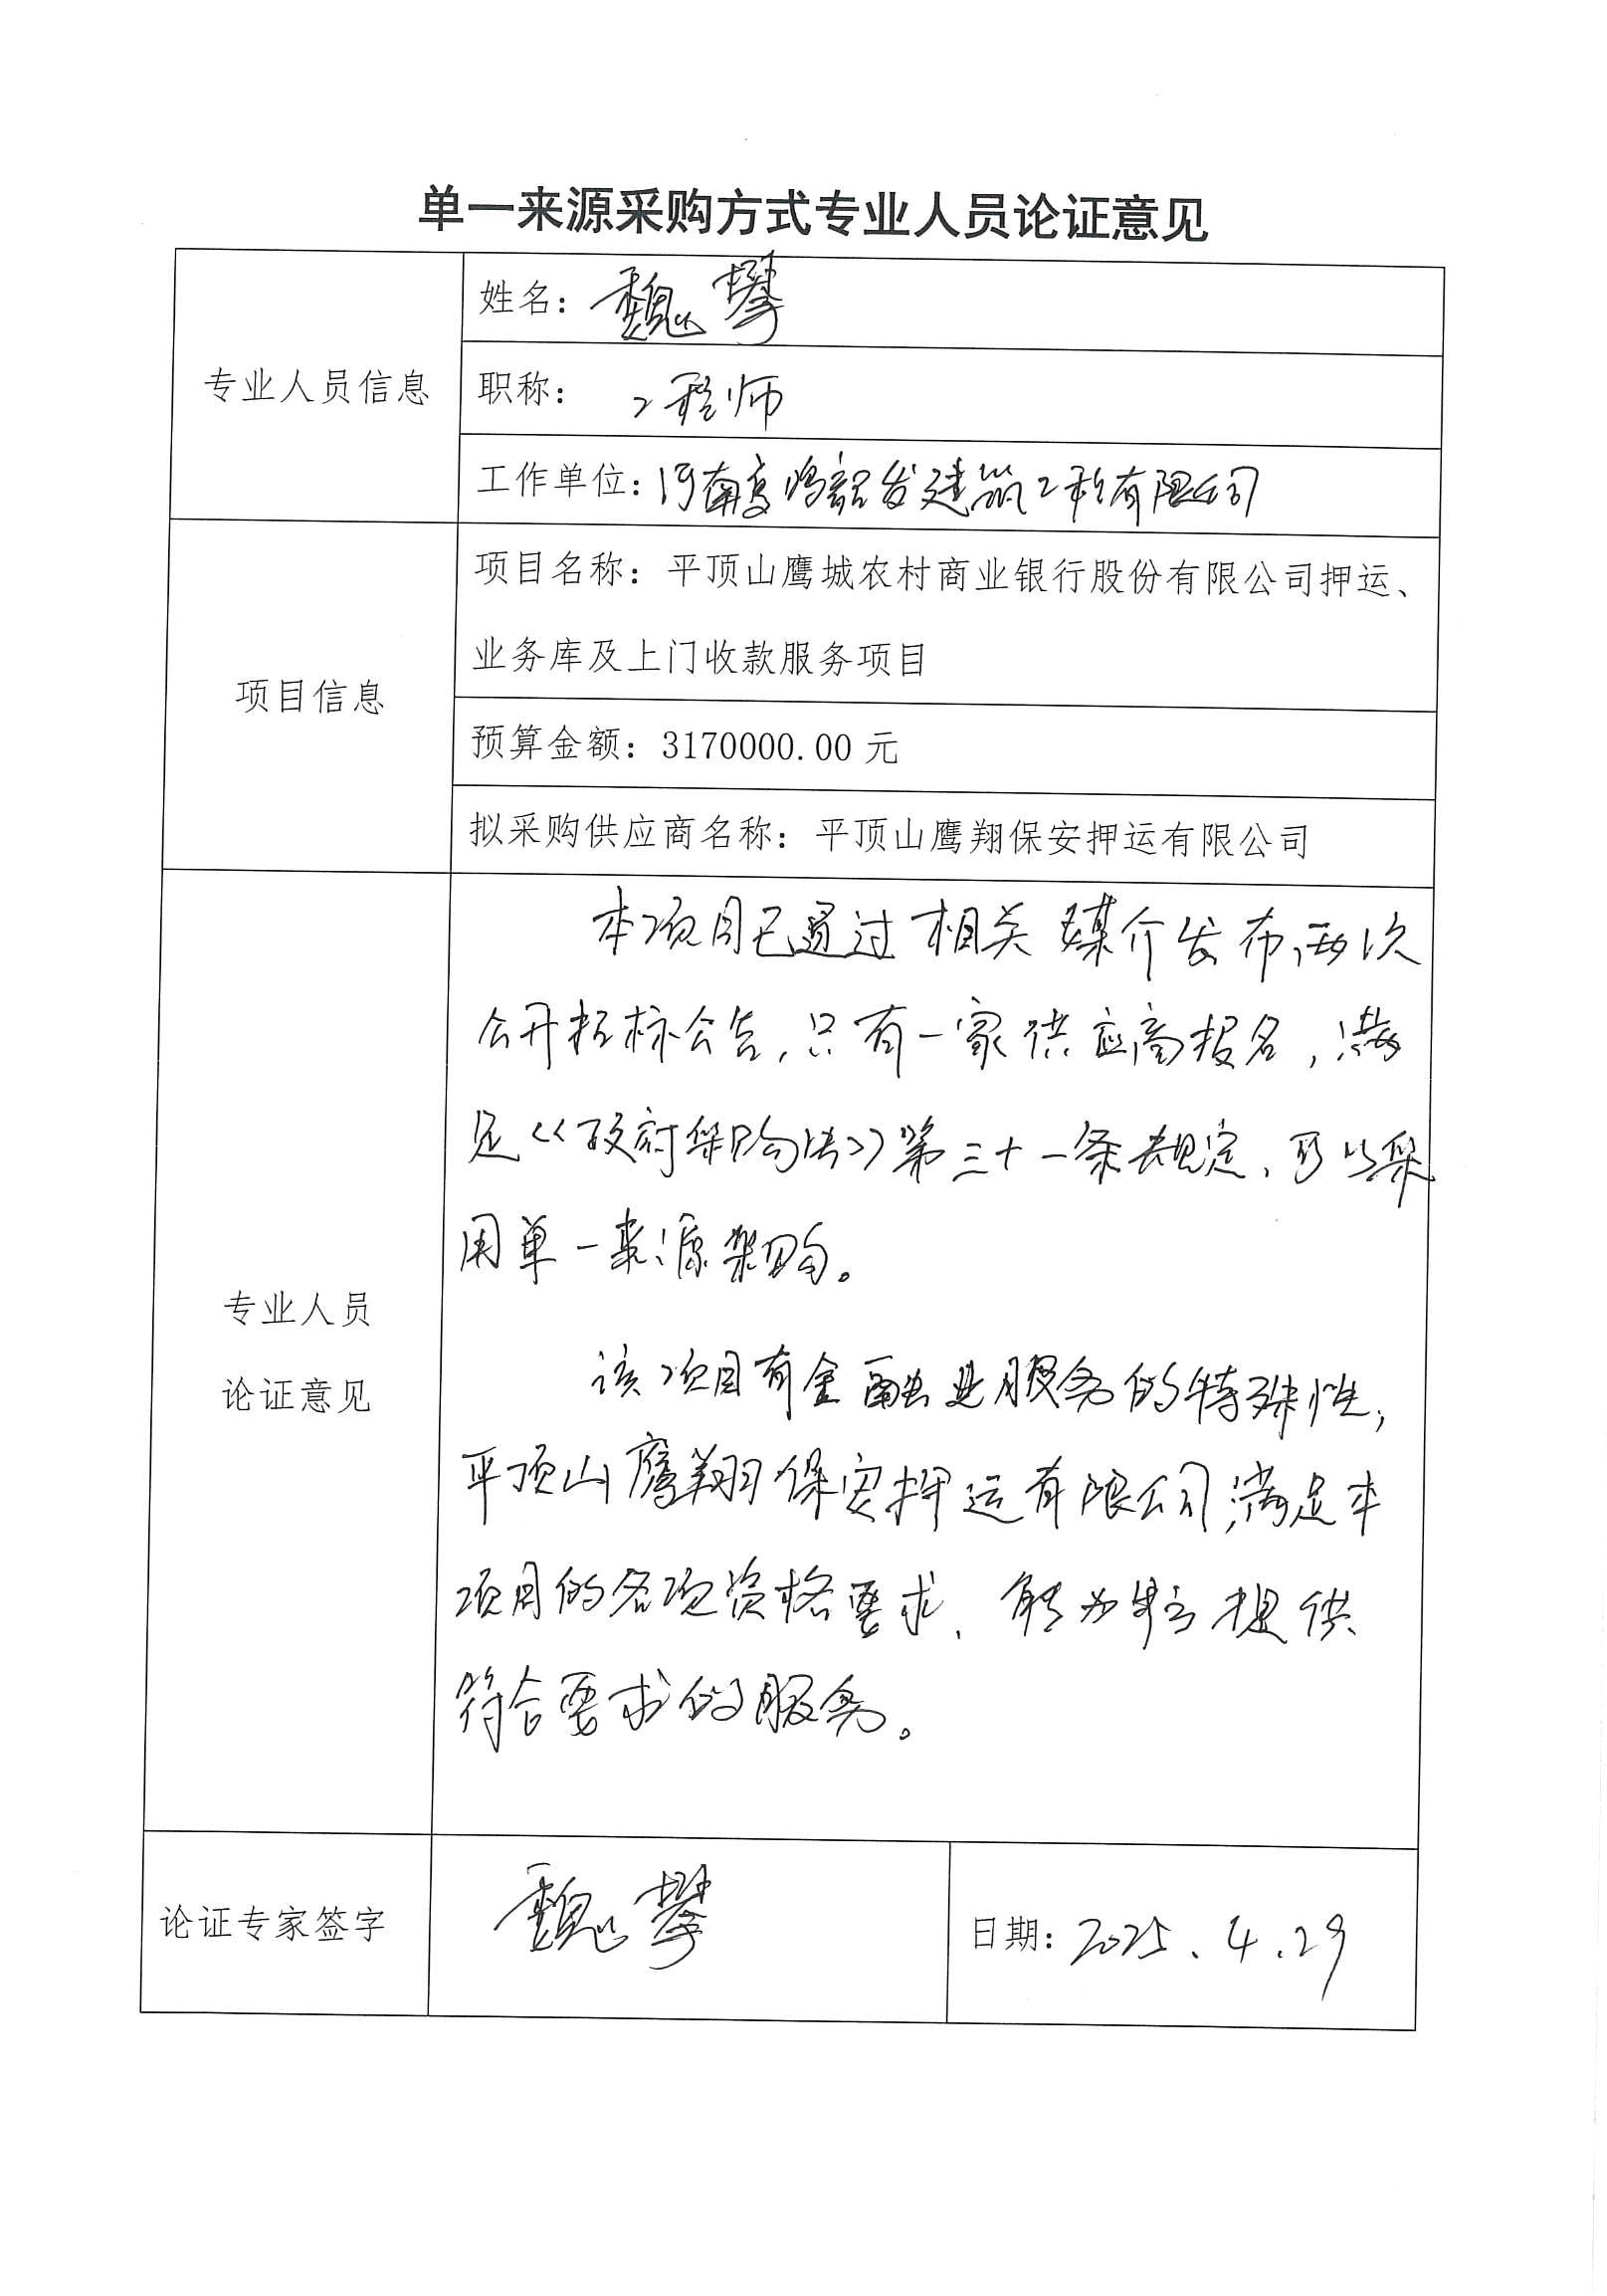 单一来源采购方式专业人员论证意见
专业人员信息
姓名：魏攀
职称：工程师
工作单位：河南 建筑工程有限公司
项目信息
项目名称：平顶山鹰城农村商业银行股份有限公司押运、
业务库及上门收款服务项目
预算金额：3170000.00 元
拟采购供应商名称：平顶山鹰翔保安押运有限公司
专业人员
论证意见
本项目已通过相关媒介发布两次
公开招标公告，只有一家供应商报名，满
足《政府采购法》第三十一条规定，可以采
用单一来源采购。
该项目有金融业服务的特殊性，
平顶山鹰翔保安押运有限公司满足本
项目的各项资格要求，能为 提供
符合要求的服务。
论证专家签字
魏攀
日期：2025.4.29